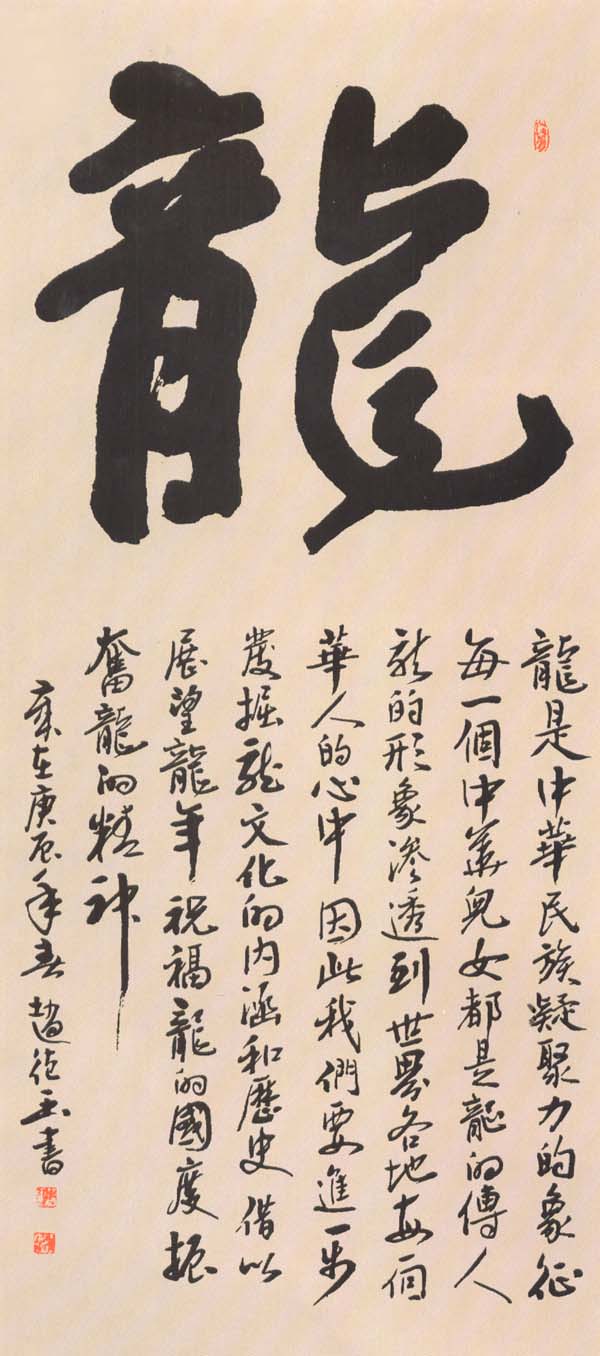 龍
龍是中華民族凝聚力的象征
每一個中華兒女都是龍的傳人
龍的形象滲透到世界各地每個
華人的心中因此我們要進一步
發掘龍文化的内涵和歷史借以
展望龍年祝福龍的國度振
奮龍的精神
歲在庚辰年春趙德玉書